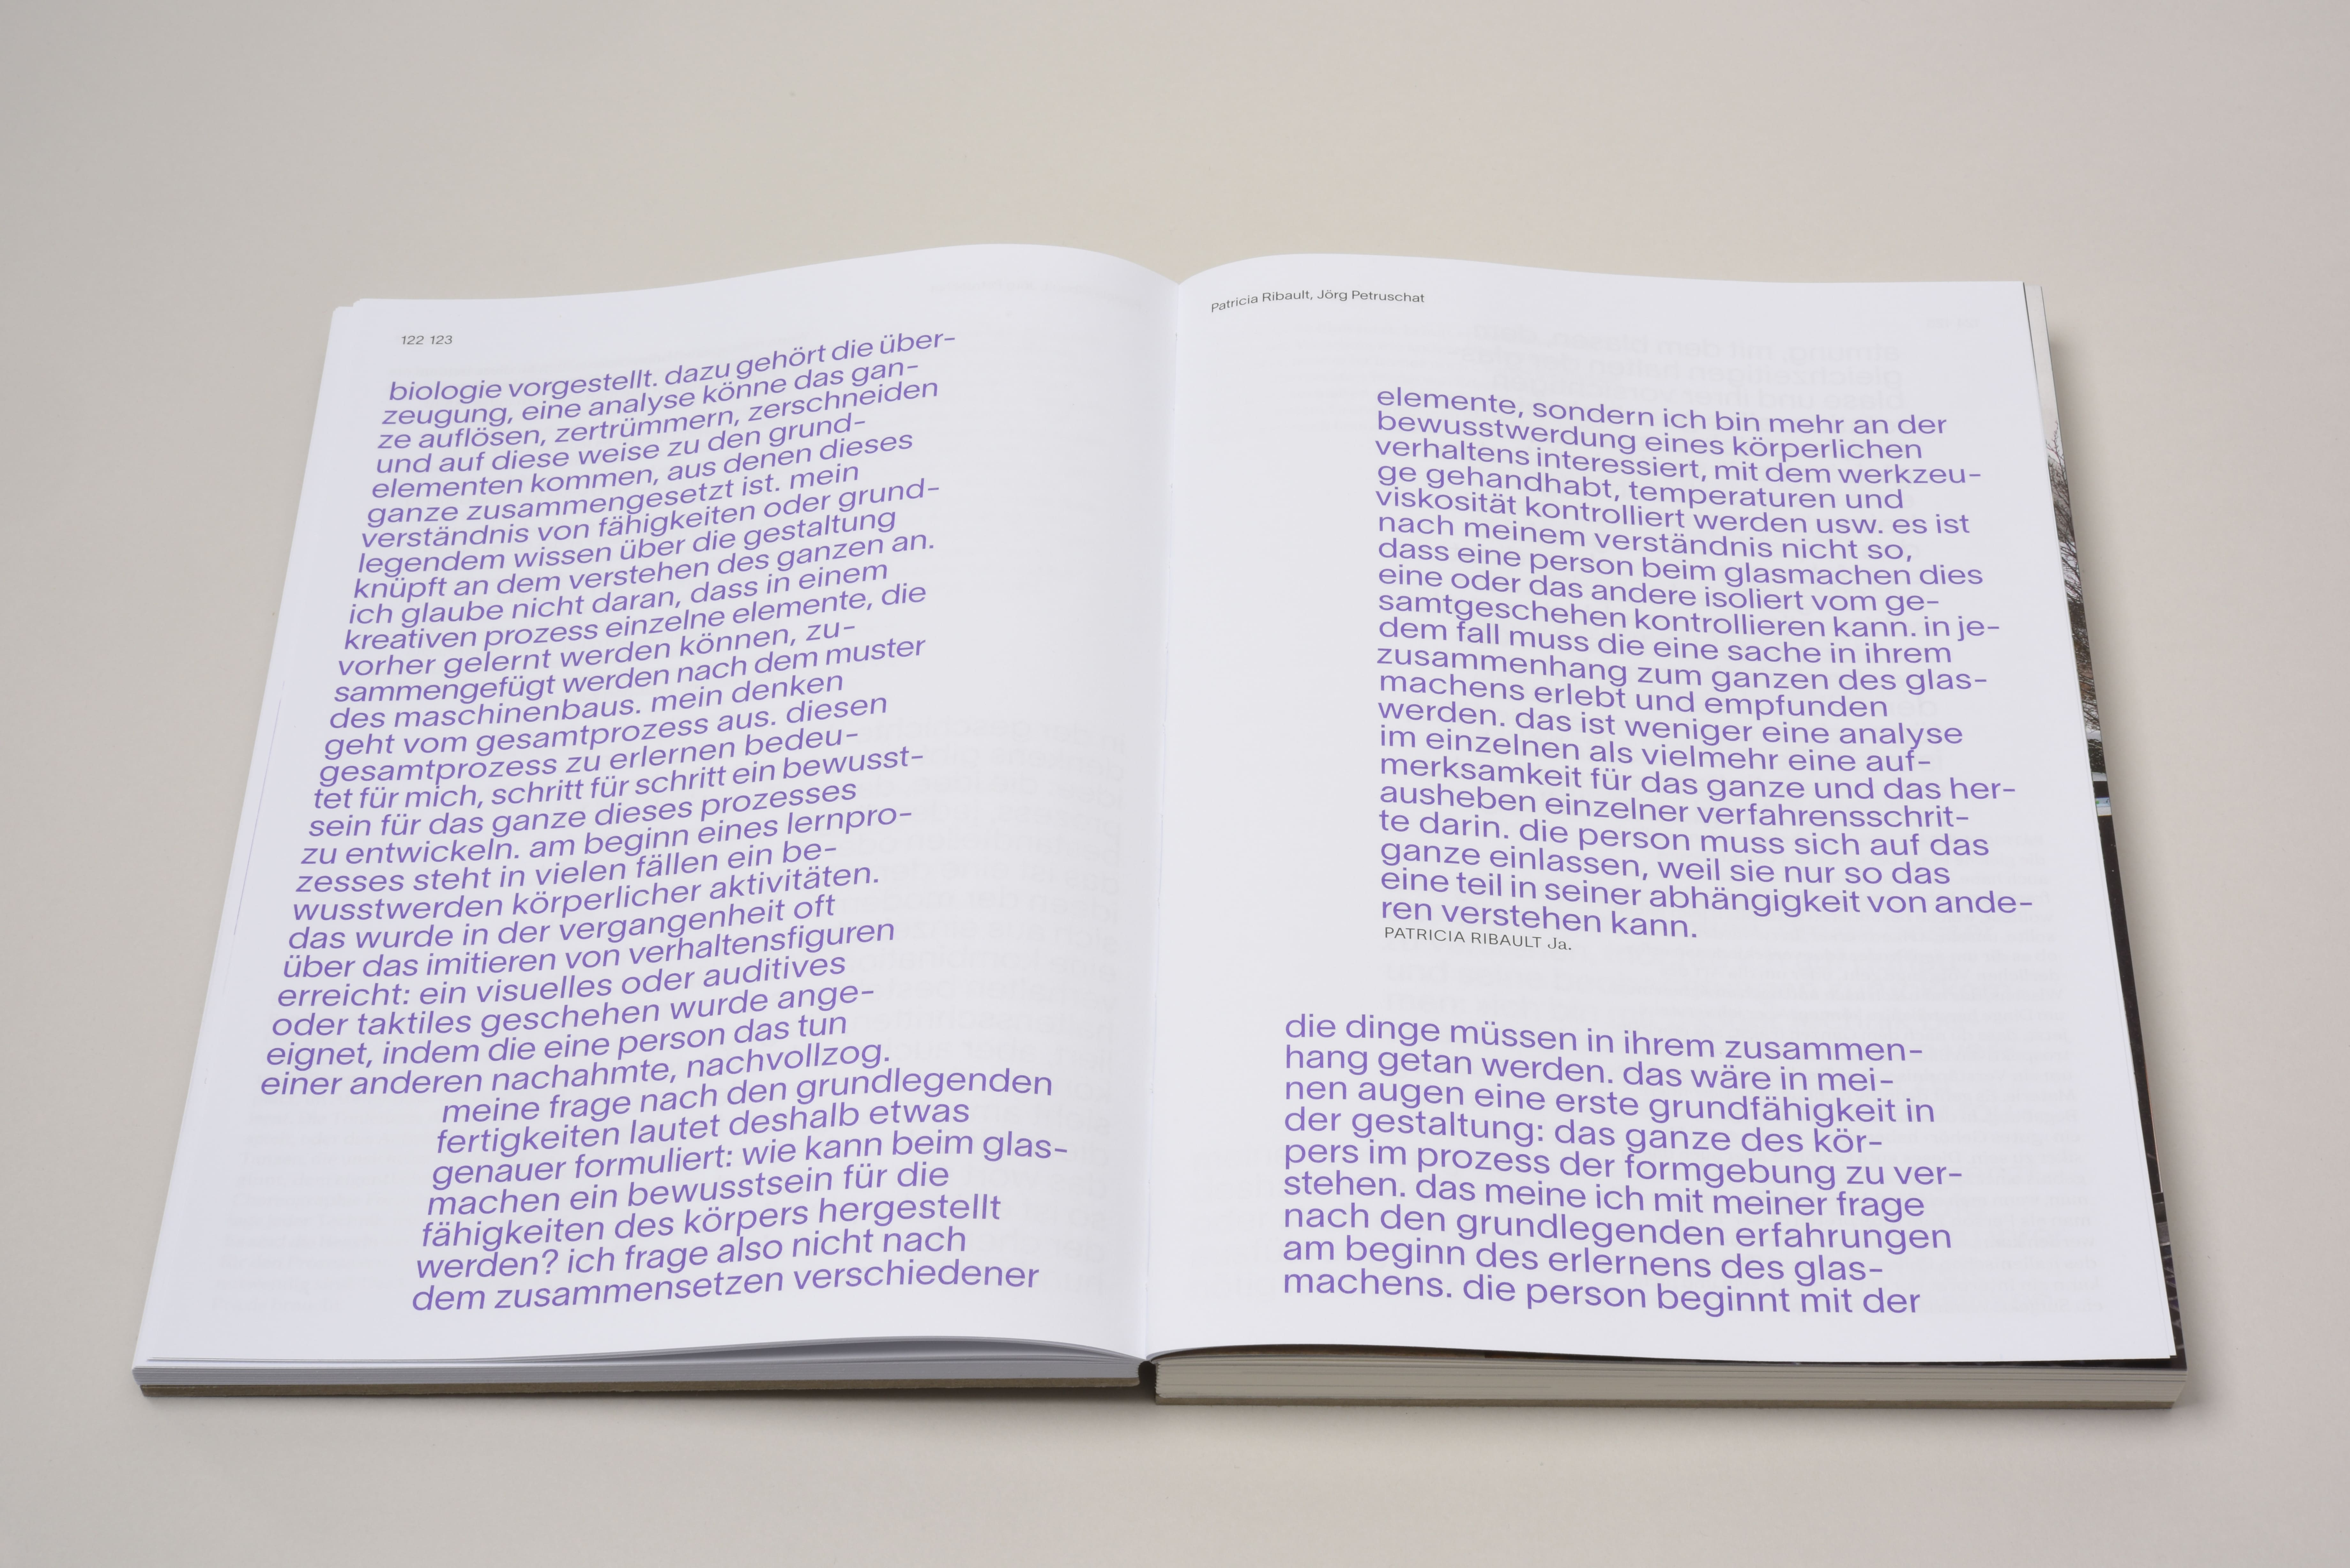 122 123
biologie vorgestellt. dazu gehört die über-
zeugung, eine analyse könne das gan-
ze auflösen, zertrümmern, zerschneiden
und auf diese weise zu den grund-
elementen kommen, aus denen dieses
ganze zusammengesetzt ist. mein
verständnis von fähigkeiten oder grund-
legendem wissen über die gestaltung
knüpft an dem verstehen des ganzen an.
ich glaube nicht daran, dass in einem
kreativen prozess einzelne elemente, die
vorher gelernt werden können, zu-
sammengefügt werden nach dem muster
des maschinenbaus. mein denken
geht vom gesamtprozess aus. diesen
gesamtprozess zu erlernen bedeu-
tet für mich, schritt für schritt ein bewusst-
sein für das ganze dieses prozesses
zu entwickeln. am beginn eines lernpro-
zesses steht in vielen fällen ein be-
wusstwerden körperlicher aktivitäten.
das wurde in der vergangenheit oft
über das imitieren von verhaltensfiguren
erreicht: ein visuelles oder auditives
oder taktiles geschehen wurde ange-
eignet, indem die eine person das tun
einer anderen nachahmte, nachvollzog.
meine frage nach den grundlegenden
fertigkeiten lautet deshalb etwas
genauer formuliert: wie kann beim glas-
machen ein bewusstsein für die
fähigkeiten des körpers hergestellt
werden? ich frage also nicht nach
dem zusammensetzen verschiedener
Patricia Ribault, Jörg Petruschat
elemente, sondern ich bin mehr an der
bewusstwerdung eines körperlichen
verhaltens interessiert, mit dem werkzeu-
ge gehandhabt, temperaturen und
viskosität kontrolliert werden usw. es ist
nach meinem verständnis nicht so,
dass eine person beim glasmachen dies
eine oder das andere isoliert vom ge-
samtgeschehen kontrollieren kann. in je-
dem fall muss die eine sache in ihrem
zusammenhang zum ganzen des glas-
machens erlebt und empfunden
werden. das ist weniger eine analyse
im einzelnen als vielmehr eine auf-
merksamkeit für das ganze und das her-
ausheben einzelner verfahrensschrit-
te darin. die person muss sich auf das
ganze einlassen, weil sie nur so das
eine teil in seiner abhängigkeit von ande-
ren verstehen kann.
PATRICIA RIBAULT Ja.
die dinge müssen in ihrem zusammen-
hang getan werden. das wäre in mei-
nen augen eine erste grundfähigkeit in
der gestaltung: das ganze des kör-
pers im prozess der formgebung zu ver-
stehen. das meine ich mit meiner frage
nach den grundlegenden erfahrungen
am beginn des erlernens des glas-
machens. die person beginnt mit der